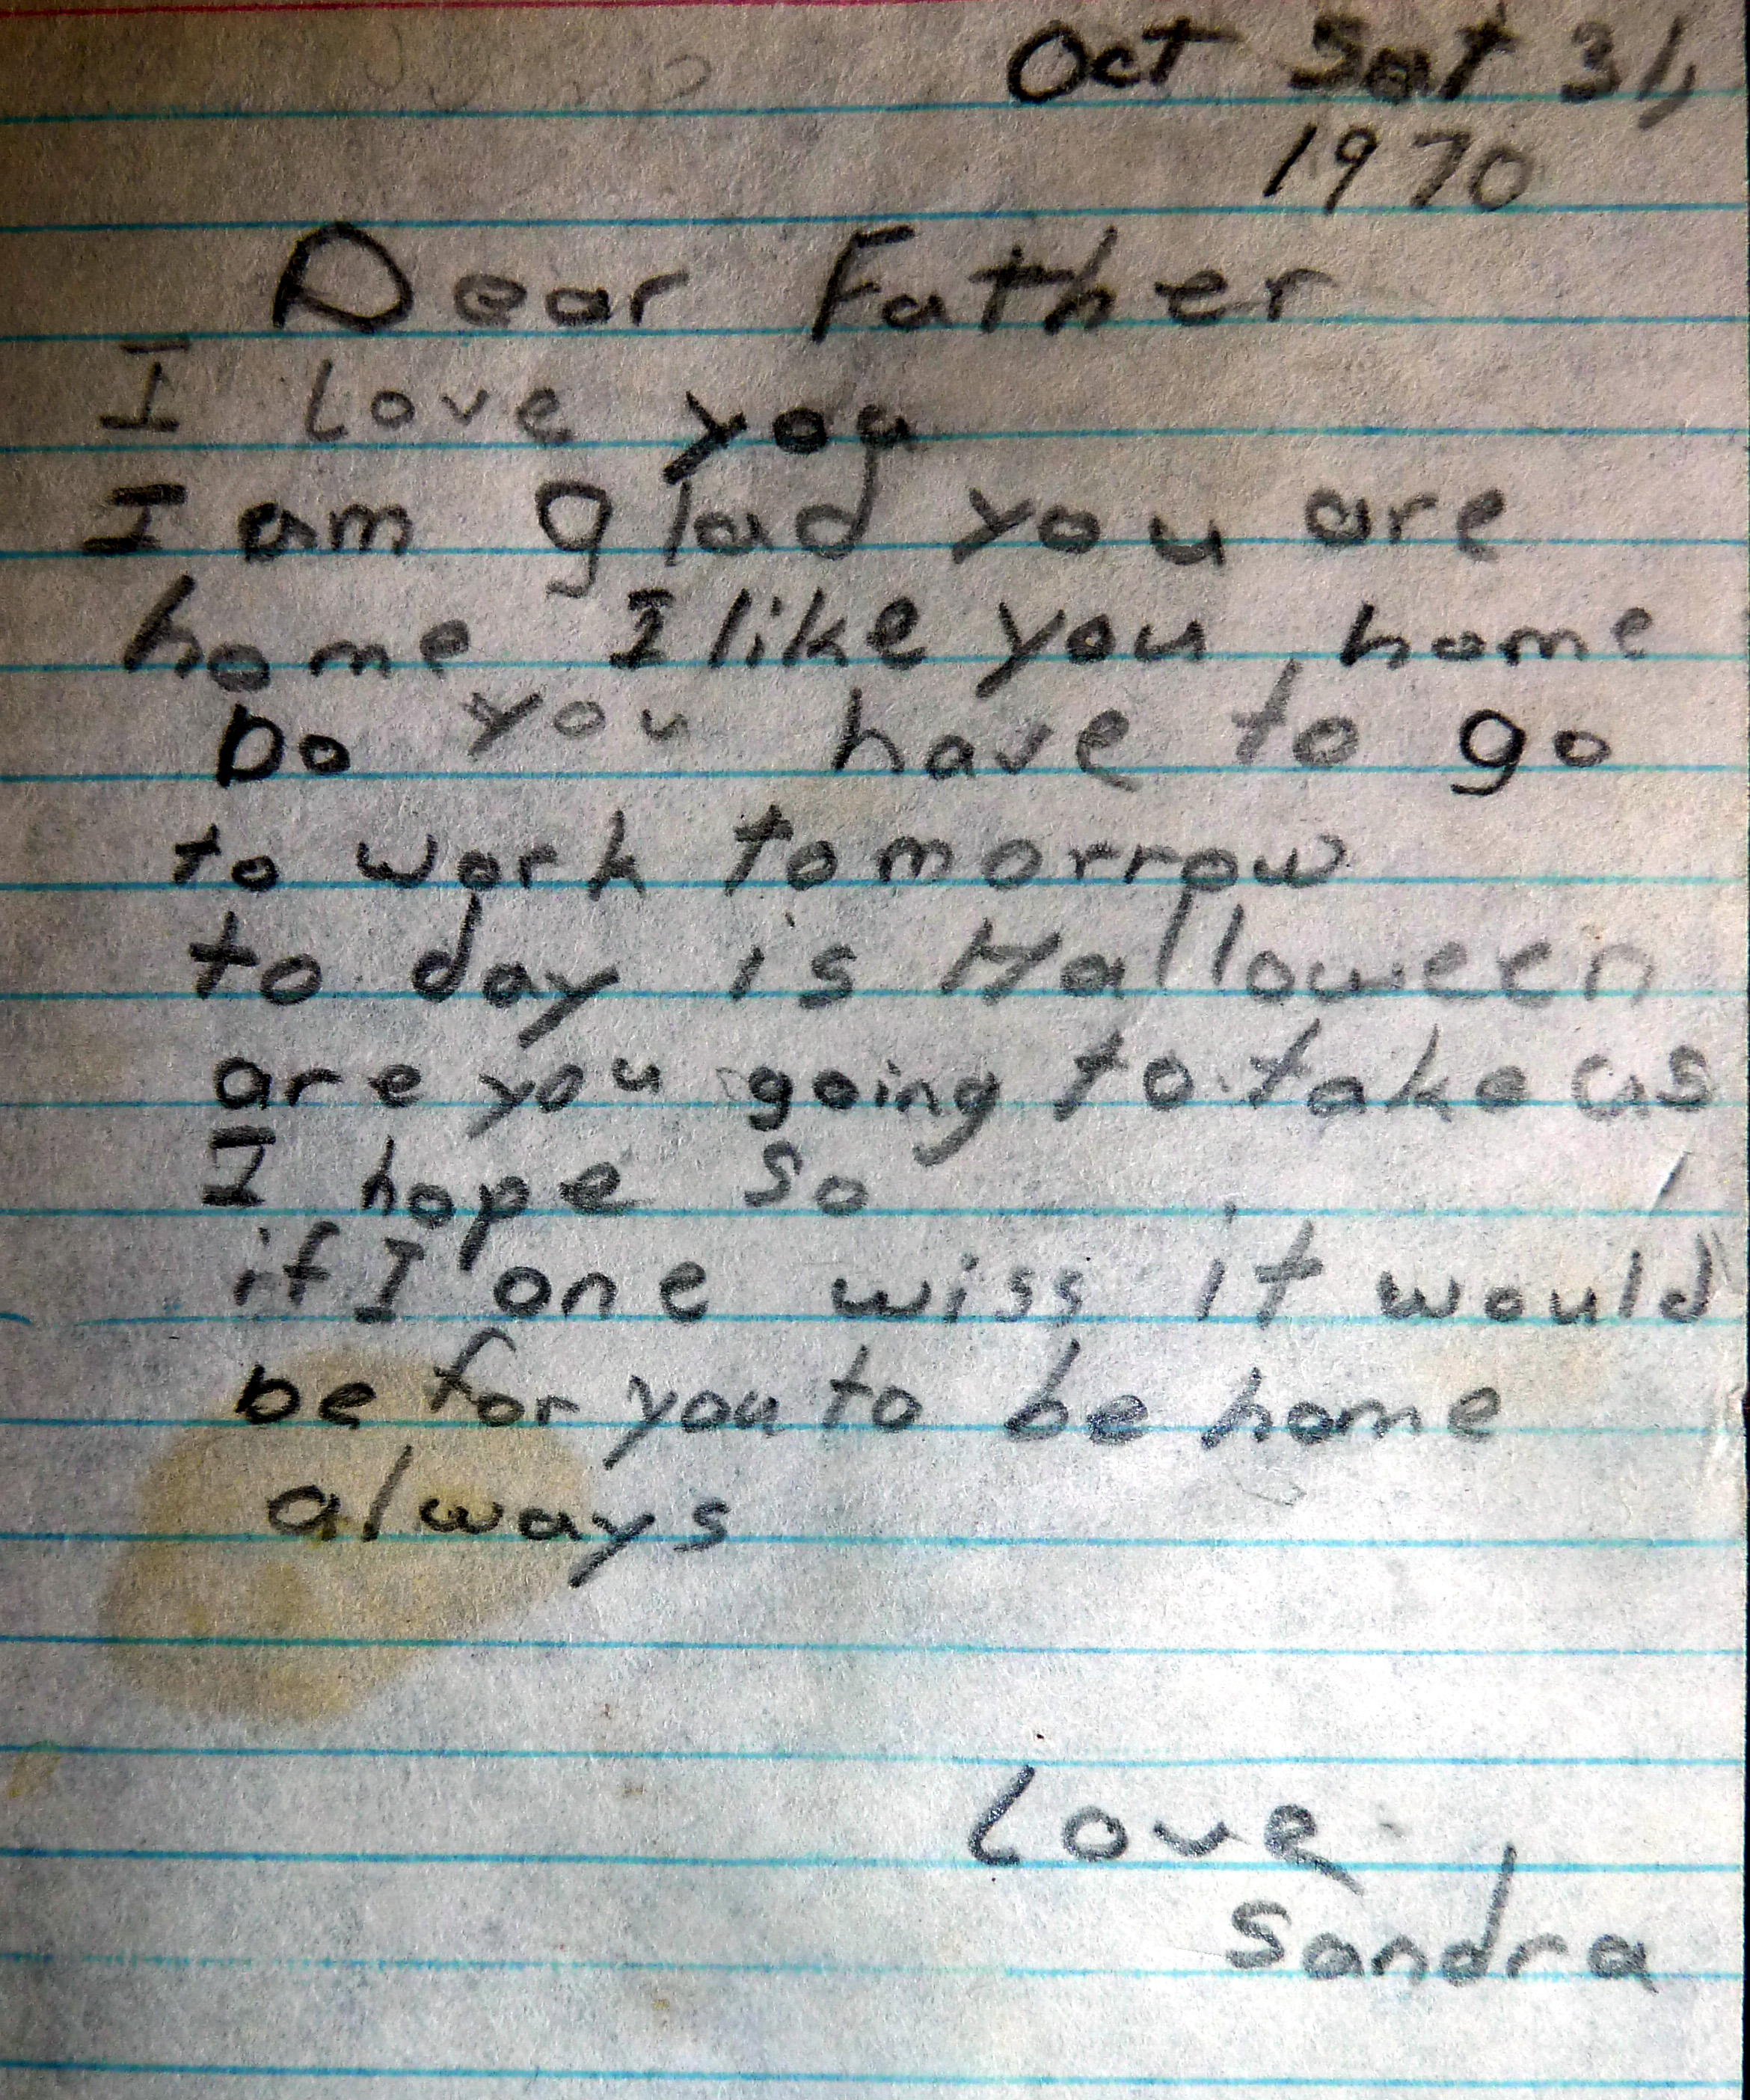 Oct Sat 31,
1970
Dear Father
I love you
I am glad you are
home I like you home
Do you have to go
to work tomorrow
to day is Halloween
are you going to take us
I hope so
if I one wiss it would
be for you to be home
always
Love
Sandra